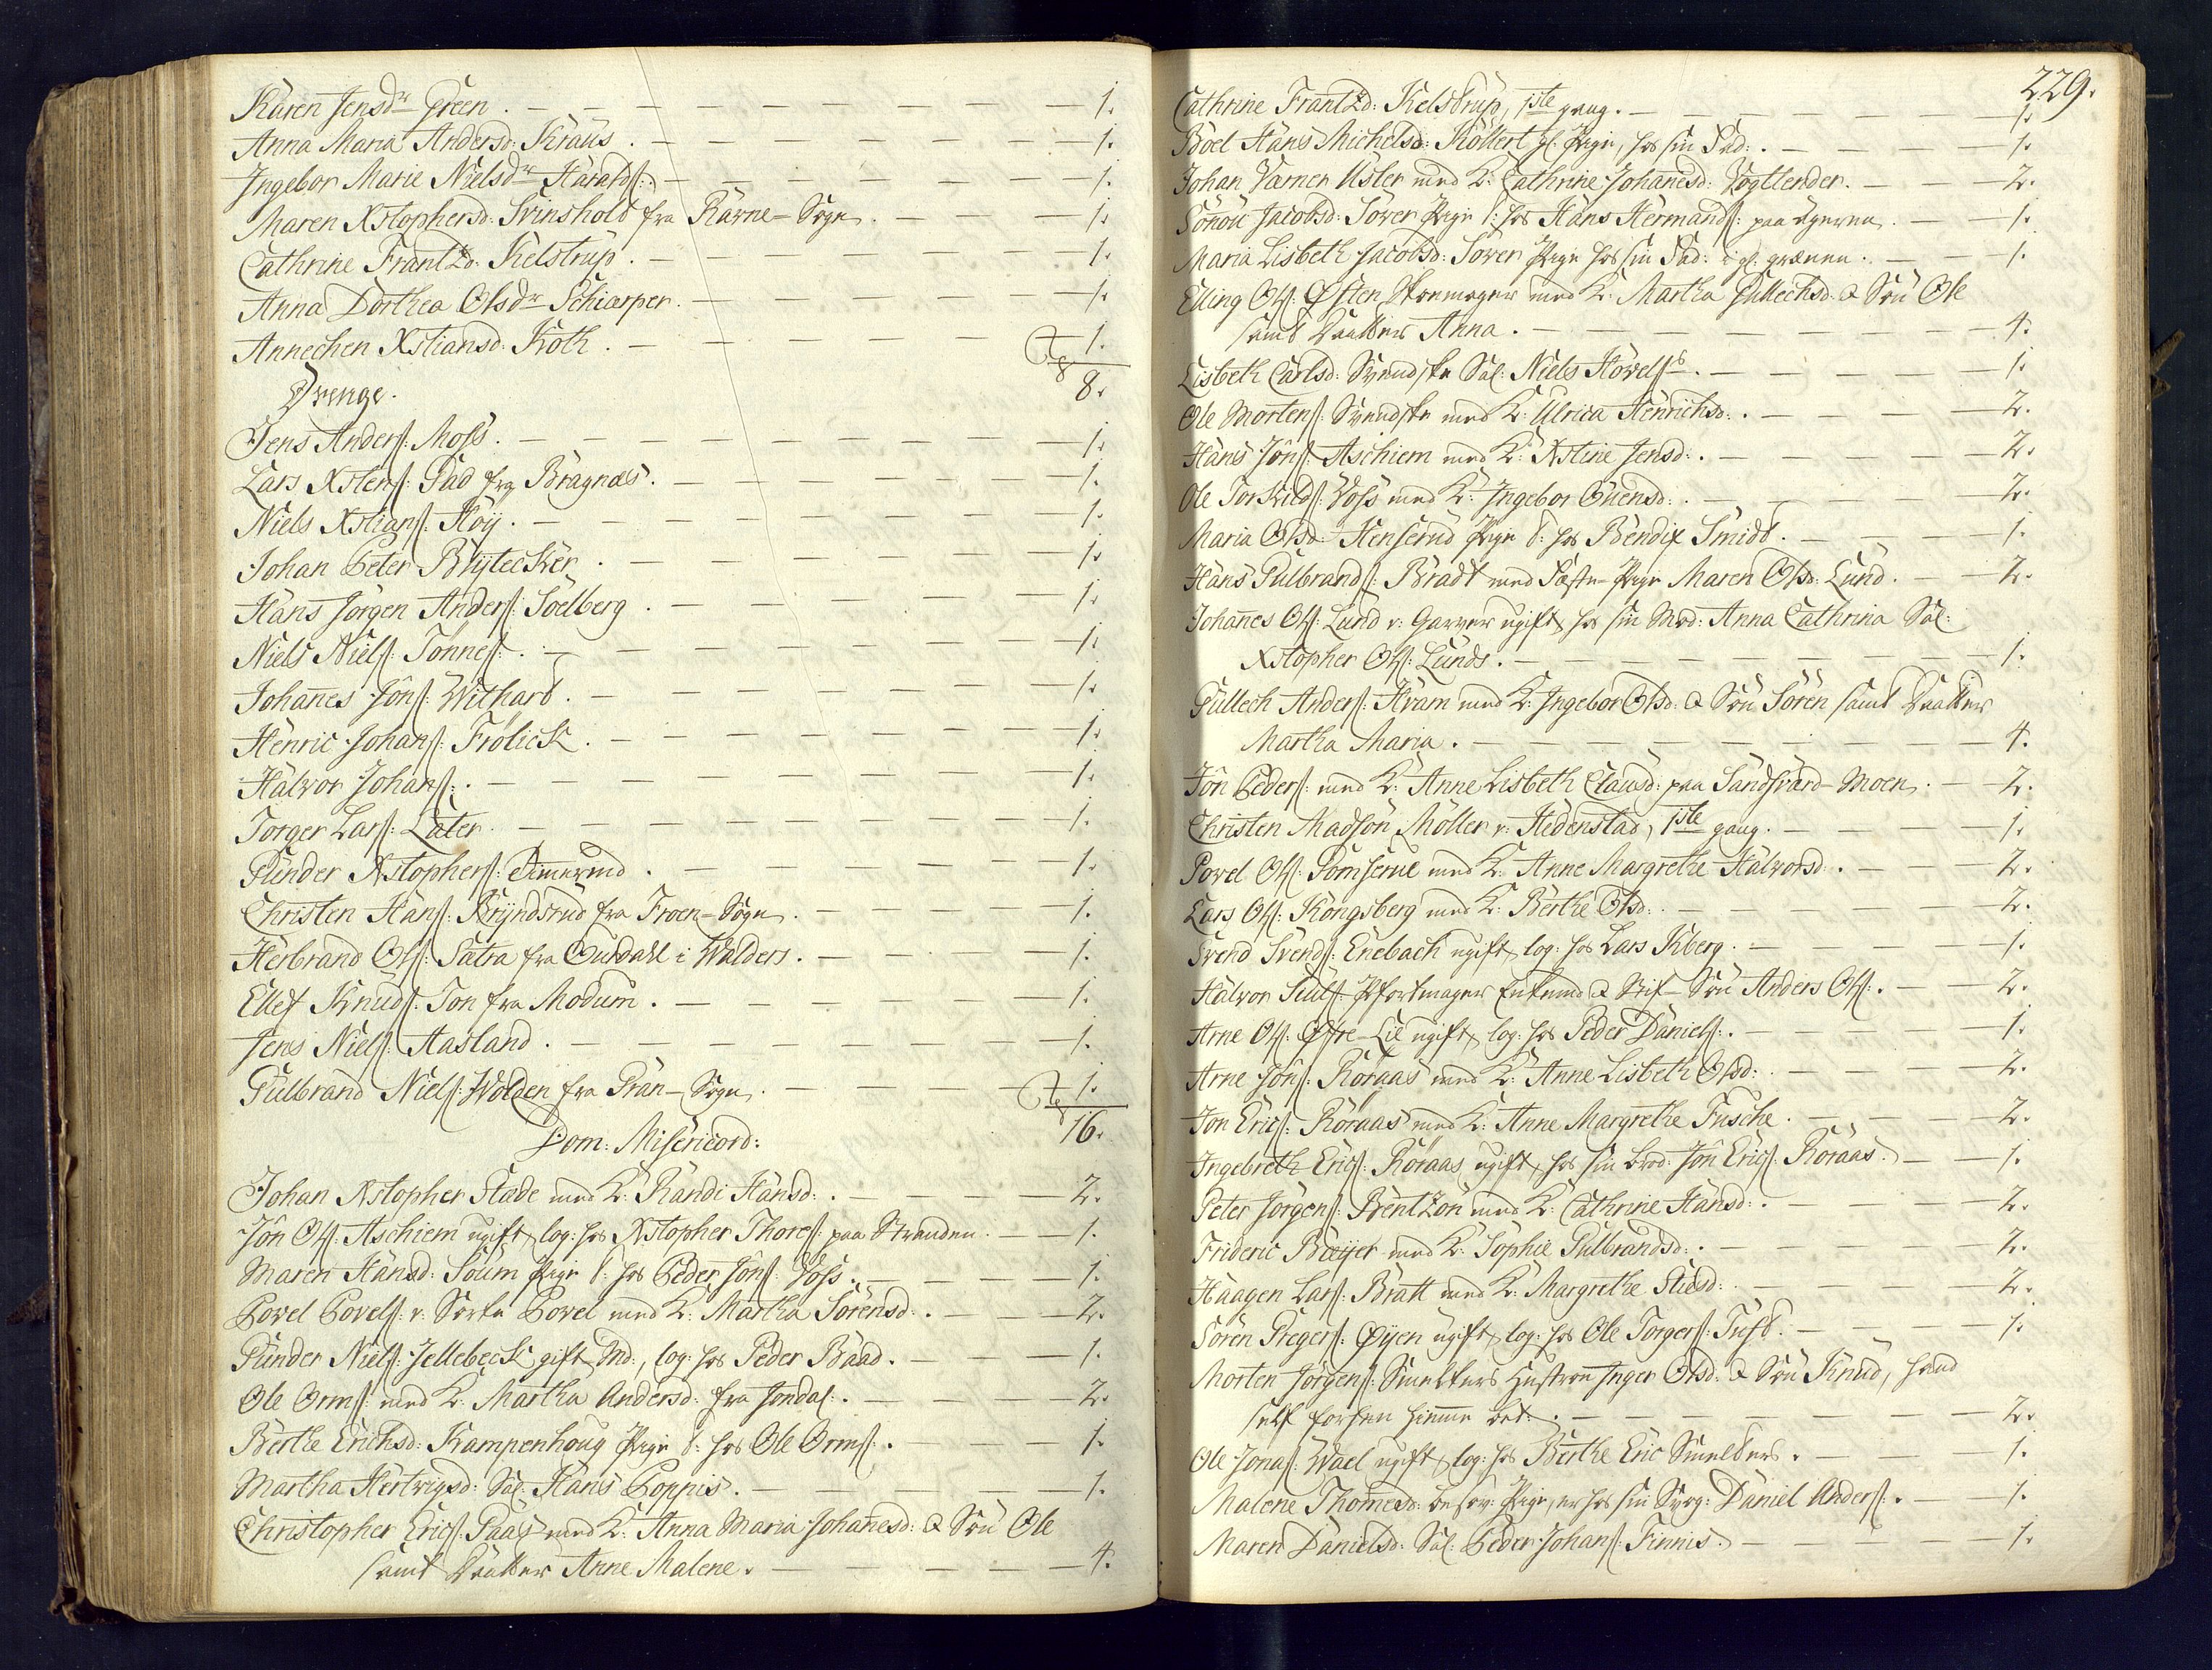 Karen Jensdr Green. — 1.
Anna Maria Andersd: Kraus. — 1.
Ingebor Marie Nielsdr Haralds:. — 1.
Maren Xstophersd: Svinshold fra Ravne-Sogn. — 1.
Cathrine Frantzd: Kelstrup. — 1.
Anna Dorthea Olsdr Schiærper. — 1.
Annechen Xstiansd: Koth. — 1.
8 8.
Drenge.
Jens Anders: Moss. — 1.
Lars Xstens: Gad fra Bragnæs. — 1.
Niels Xstians: Höy. — 1.
Johan Peter Blytecker. — 1.
Hans Jörgen Anders: Söelberg. — 1.
Niels Niels: Tönnes:. — 1.
Johanes Jöns: Withard. — 1.
Henric Johans: Frölick. — 1.
Halvor Johans:. — 1.
Torger Lars: Later. — 1.
Gunder Xstophers: Dimerud. — 1.
Christen Hans: Kryndsrud fra Froen-Sogn. — 1.
Herbrand Ols: Sætra fra Ourdahl i Walders. — 1.
Ellef Knuds: Ton fra Modum. — 1.
Jens Niels: Aasland. — 1.
Gulbrand Niels: Wolden fra Gran-Sogn. — 1.
16 16.
Dom: Misericord:
Johan Xstopher Stade med K: Randi Hansd:. — 2.
Jôn Ols: Aschiem ugift, log: hos Xstopher Thores: paa Stranden. — 1.
Maren Hansd: Soum Pige t: hos Peder Jöns: Voss. — 1.
Povel Povels: v: Sorte Povel med K: Martha Sörensd:. — 2.
Gunder Niels: Jellebeck gift Md:, log: hos Peder Baad. — 1.
Ole Orms: med K: Martha Andersd: fra Jondal:. — 2.
Berthe Erichsd: Kampenhoug Pige t: hos Ole Orms:. — 1.
Martha Hertvigsd: Sal: Hans Poppis. — 1.
Christopher Erics: Gaas med K: Anna Maria Johanesd: & Sön Ole
samt Daatter Anne Malene. — 4.
229.
Cathrine Frantzd: Kelstrup, 1ste gang. — 1.
Boel Hans Michelsd: Köllert gl. Pige, hos sin Fad:. — 1.
Johan Varner Usler med K: Cathrine Johanesd: Vogtlender. — 2.
Jacobsd: Sover Pige t: hos Hans Hermands: paa Ageren. — 1.
Maria Lisbeth Jacobsd: Sover Pige hos sin Fad: — 1.
Elling Ols: Østen Skoemager med K: Martha Gullechsd: & Sön Ole
samt Daatter Anna. — 4.
Lisbeth Carlsd: Svendske Sal: Niels — 1.
Ole Mortens: Svendske med K: Ulrica Henrichsd:. — 2.
Hans Jöns: Aschiem med K: Xstine Jensd:. — 2.
Ole Torkilds: Voss med K: Ingebor Ouensd:. — 2.
Maria Olsd: Henserud Pige t: hos Bendix Smidt. — 1.
Hans Gulbrands: Bradt med Fæste-Pige Maren Olsd: Lund. — 2.
Johanes Ols: Lund v: Garver ugift, hos sin Mod: Anna Cathrina Sal:
Xstopher Ols: Lunds. — 1.
Gullech Anders: Hvam med K: Ingebor Olsd: & Sön Sören samt Daatter
Martha Maria. — 4.
Jôn Peders: med K: Anne Lisbeth Clausd: paa Sandsværd-Moen. — 2.
Christen Madsön Möller v: Hedenstad, 1ste gang. — 1.
Povel Ols: Gomserue med K: Anne Margrethe Halvorsd:. — 2.
Lars Ols: Kongsberg med K: Berthe Olsd:. — 2.
Svend Svends: Enebach ugift, log: hos Lars Kberg. — 1.
Halvor Siuls: Pforkmager Enkemd & Stif-Sön Anders Ols:. — 2.
Arne Ols: Øffre-Lie ugift, log: hos Peder Daniels:. — 1.
Arne Jöns: Röraas med K: Anne Lisbeth Olsd:. — 2.
Jon Erics: Röraas med K: Anne Margrethe Fusche. — 2.
Ingebreth Erics: Röraas ugift, hos sin Brod: Jôn Erics: Röraas. — 1.
Peter Jörgens: Brentzon med K: Cathrine Hansd:. — 2.
Frideric Böeyer med K: Sophie Gulbrandsd:. — 2.
Haagen Lars: Bratt med K: Margrethe Stiesd:. — 2.
Sören Gregers: Øyen ugift, log: hos Ole Torgers: Tuft. — 1.
Morten Jörgens: Smelters Hustroe Inger Olsd: & Sön Knud, hand
self forhen hiemme bet:. — 2.
Ole Jonas: Wael ugift, log: hos Berthe Eric Smelters. — 1.
Malene Thomesd: besov: Pige, er hos sin Svog: Daniel Anders:. — 1.
Maren Danielsd: Sal: Peder Johans: Finnis. — 1.